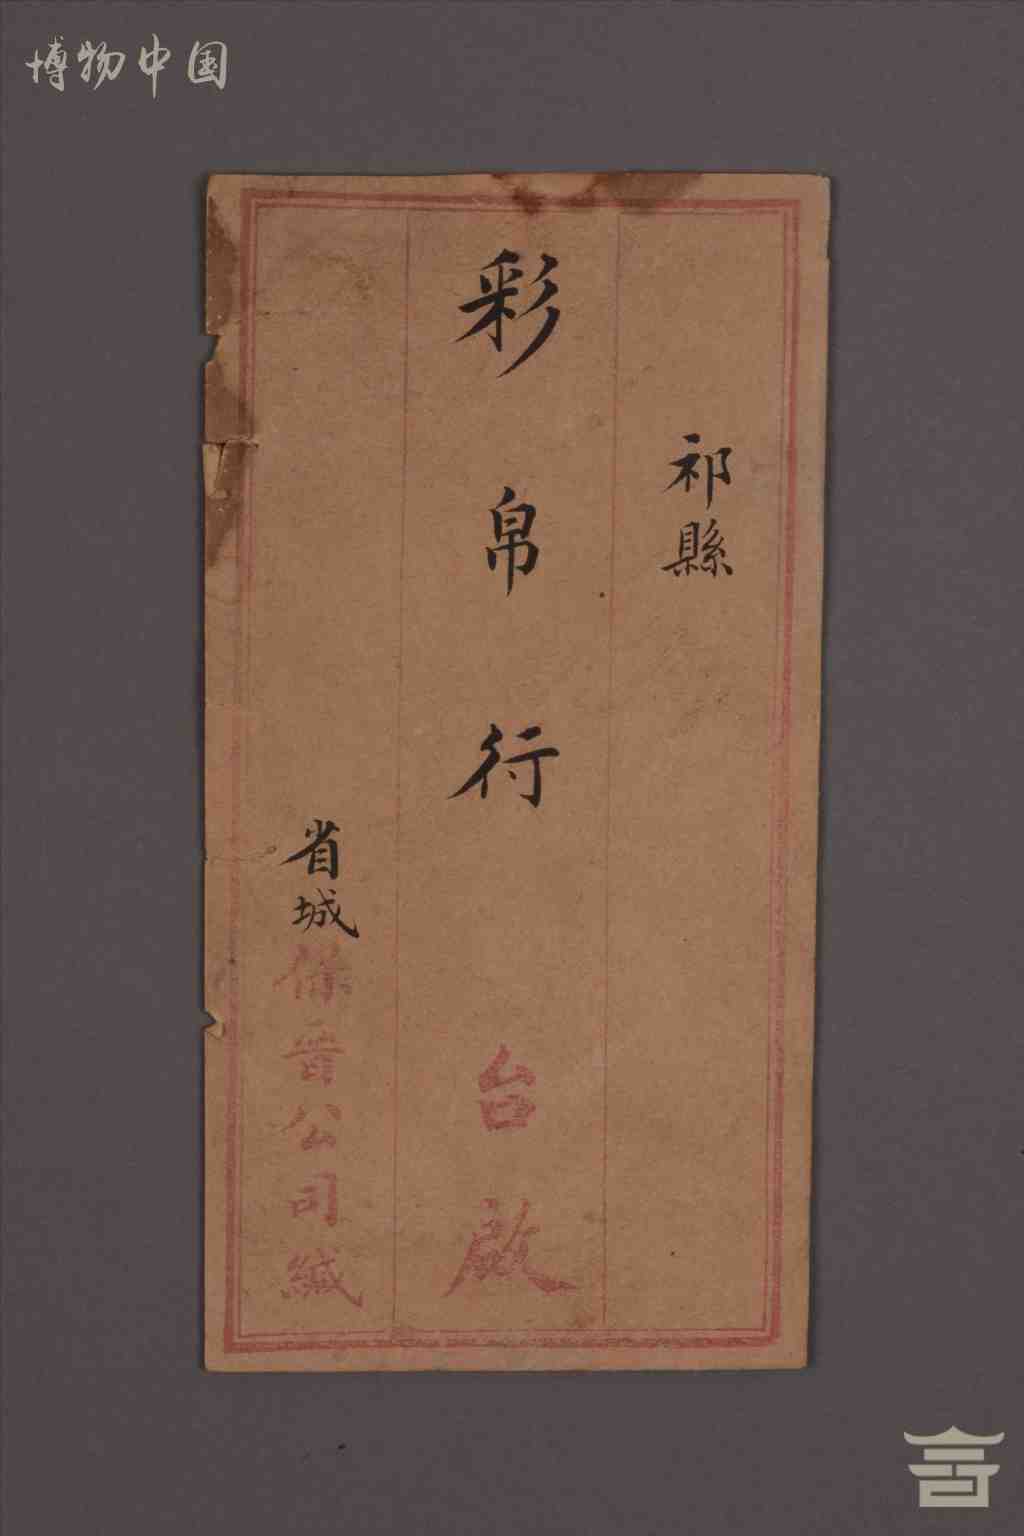 博物中国
祁縣
彩帛行台啟
省城保晉公司緘